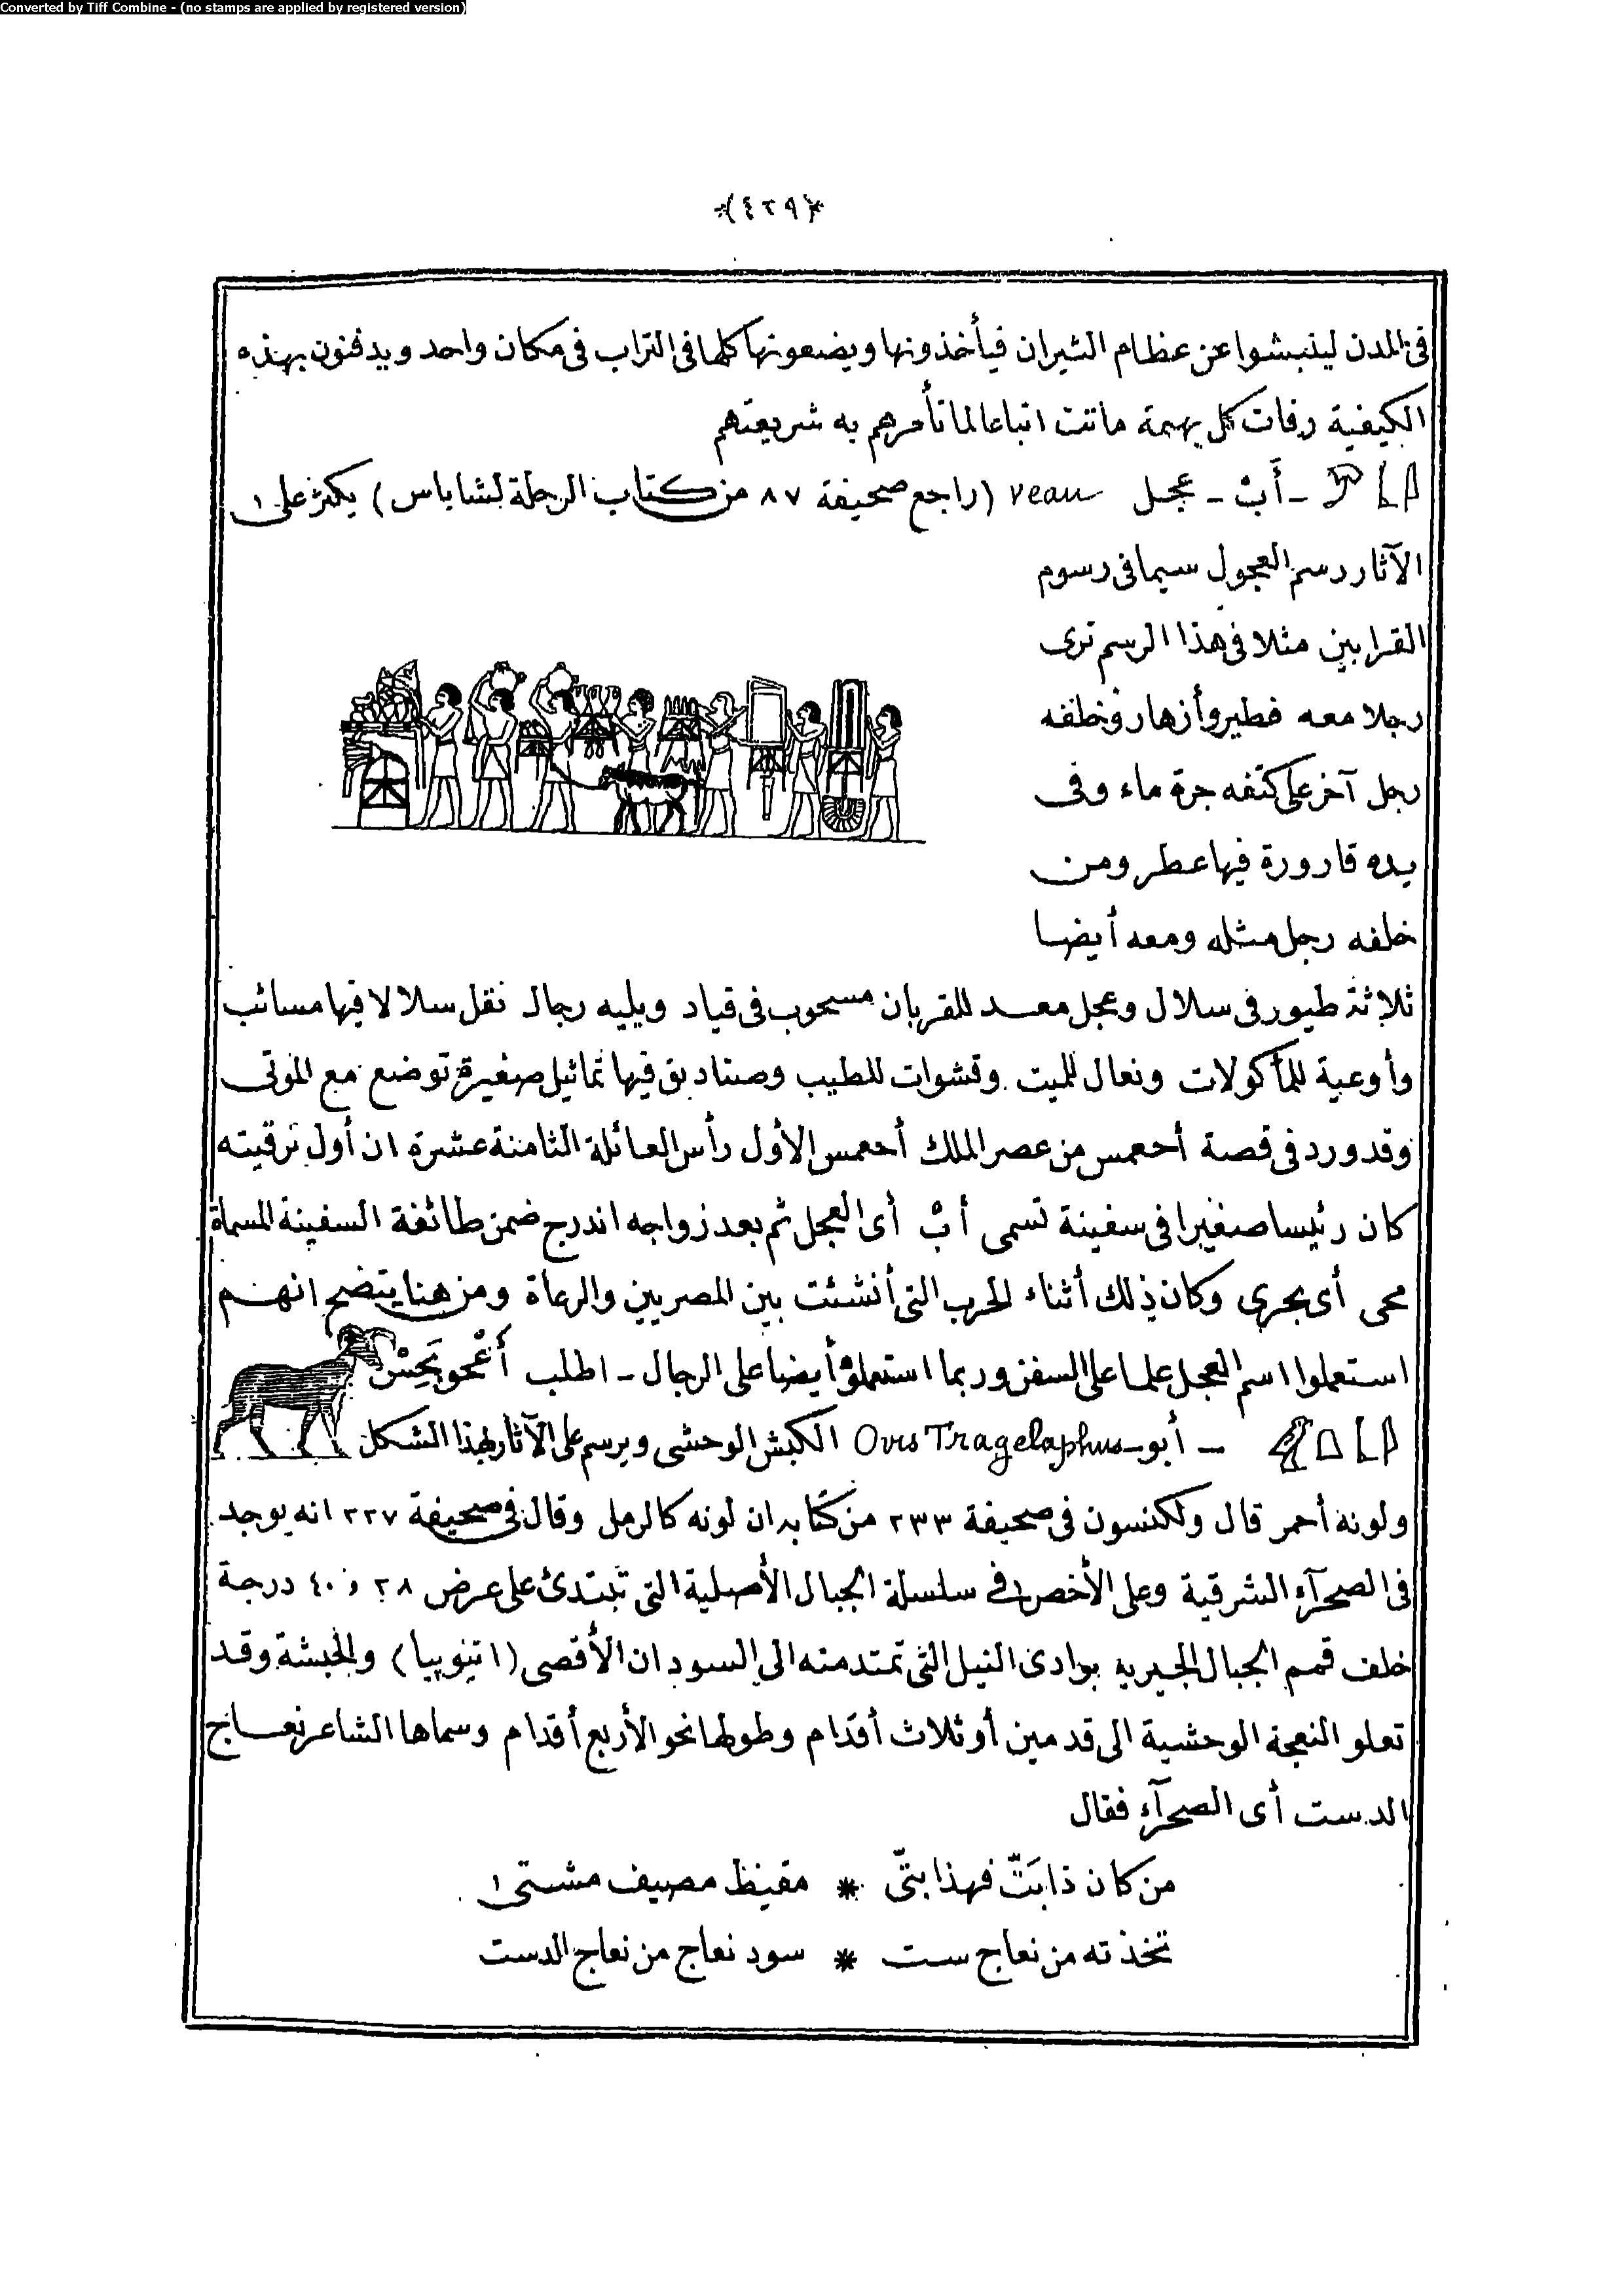 Converted by Tiff Combine - (no stamps are applied by registered version)
﴿٤٢٩﴾
فى المدن لينبشوا عن عظام الثيران فيأخذونها ويضعونها كلها فى التراب فى مكان واحد ويدفنون بهذه
الكيفية رفات كل بهيمة ماتت اتباعا لما تأمرهم به شريعتهم
ـ أَبْ ـ عجل veau (راجع صحيفة ٨٧ من كتاب الرحلة لشاباس) يكثر على
الآثار رسم العجول سيما فى رسوم
القرابين مثلا فى هذا الرسم ترى
رجلا معه فطير وأزهار وخلفه
رجل آخر على كتفه جرة ماء وفى
يده قارورة فيها عطر ومن
خلفه رجل مثله ومعه أيضا
ثلاثة طيور فى سلال وعجل معد للقربان مسحوب فى قياد ويليه رجال تقل سلالا فيها مسائب
وأوعية للمأكولات ونعال للميت وقشوات للطيب وصناديق فيها تماثيل صغيرة توضع مع الموتى
وقد ورد فى قصة أحعمس من عصر الملك أحعمس الأول رأس العائلة الثامنة عشرة ان أول ترقيته
كان رئيسا صغيرا فى سفينة تسمى أبْ أى العجل ثم بعد زواجه اندرج ضمن طائفة السفينة المسماة
محى أى بحرى وكان ذلك أثناء الحرب التى أنشئت بين المصريين والرعاة ومن هنا يتضح انهم
استعملوا اسم العجل علما على السفن وربما استعملوه أيضا على الرجال ـ اطلب
ـ أبو ـ Ovis Tragelaphus الكبش الوحشى ويرسم على الآثار بهذا الشكل
ولونه أحمر قال ولكنسون فى صحيفة ٢٣٣ من كتابه ان لونه كالرمل وقال فى صحيفة ٢٢٧ انه يوجد
فى الصحرآء الشرقية وعلى الأخص فى سلسلة الجبال الأصلية التى تبتدئ على عرض ٢٨ و ٤٠ درجة
خلف قمم الجبال الجيرية بوادى النيل التى تمتد منه الى السودان الأقصى (اتيوپيا) والحبشة وقد
تعلو النعجة الوحشية الى قدمين أو ثلاث أقدام وطولها نحو الأربع أقدام وسماها الشاعر نعاج
الدست أى الصحرآء فقال
من كان ذا بَتّ فهذا بتّى * مقيظ مصيف مشتى
تخذته من نعاج ست * سود نعاج من نعاج الدست